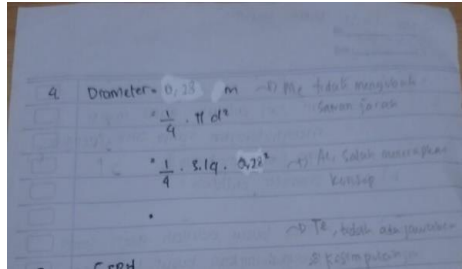 4 Diameter = 0,28 m → Me tidak mengubah
satuan jarak
= 1/4 . π d²
= 1/4 . 3.14 . 0,28² → Ar, salah menerapkan
konsep
→ Te, tidak ada jawaban
& kesimpulan